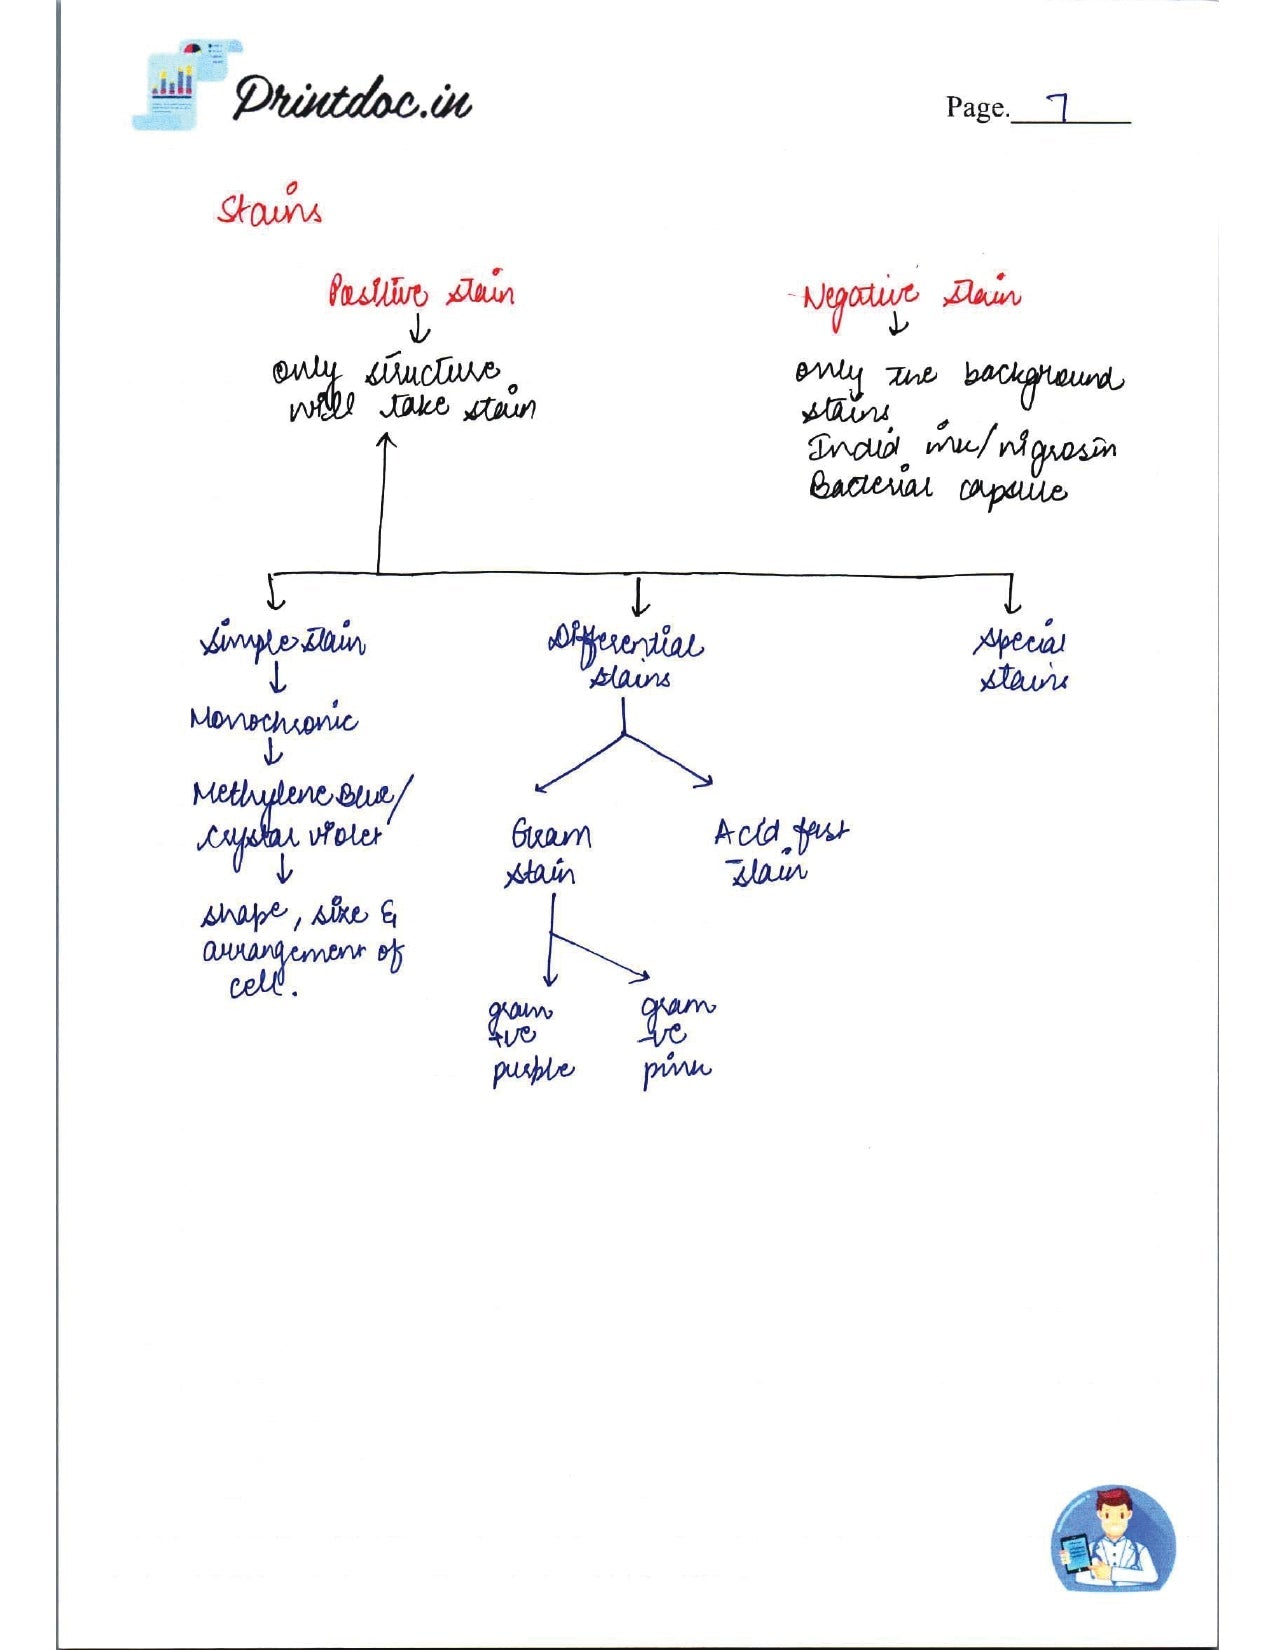 Printdoc.in
Page. 7
Stains
Positive stain
Negative stain
only structure
will take stain
only the background
stains
India ink/nigrosin
Bacterial capsule
Simple stain
Differential
stains
special
stains
Monochromic
Methylene Blue/
crystal violet
Gram
stain
Acid fast
stain
shape, size &
arrangement of
cell.
gram
+ve
purple
gram
-ve
pink